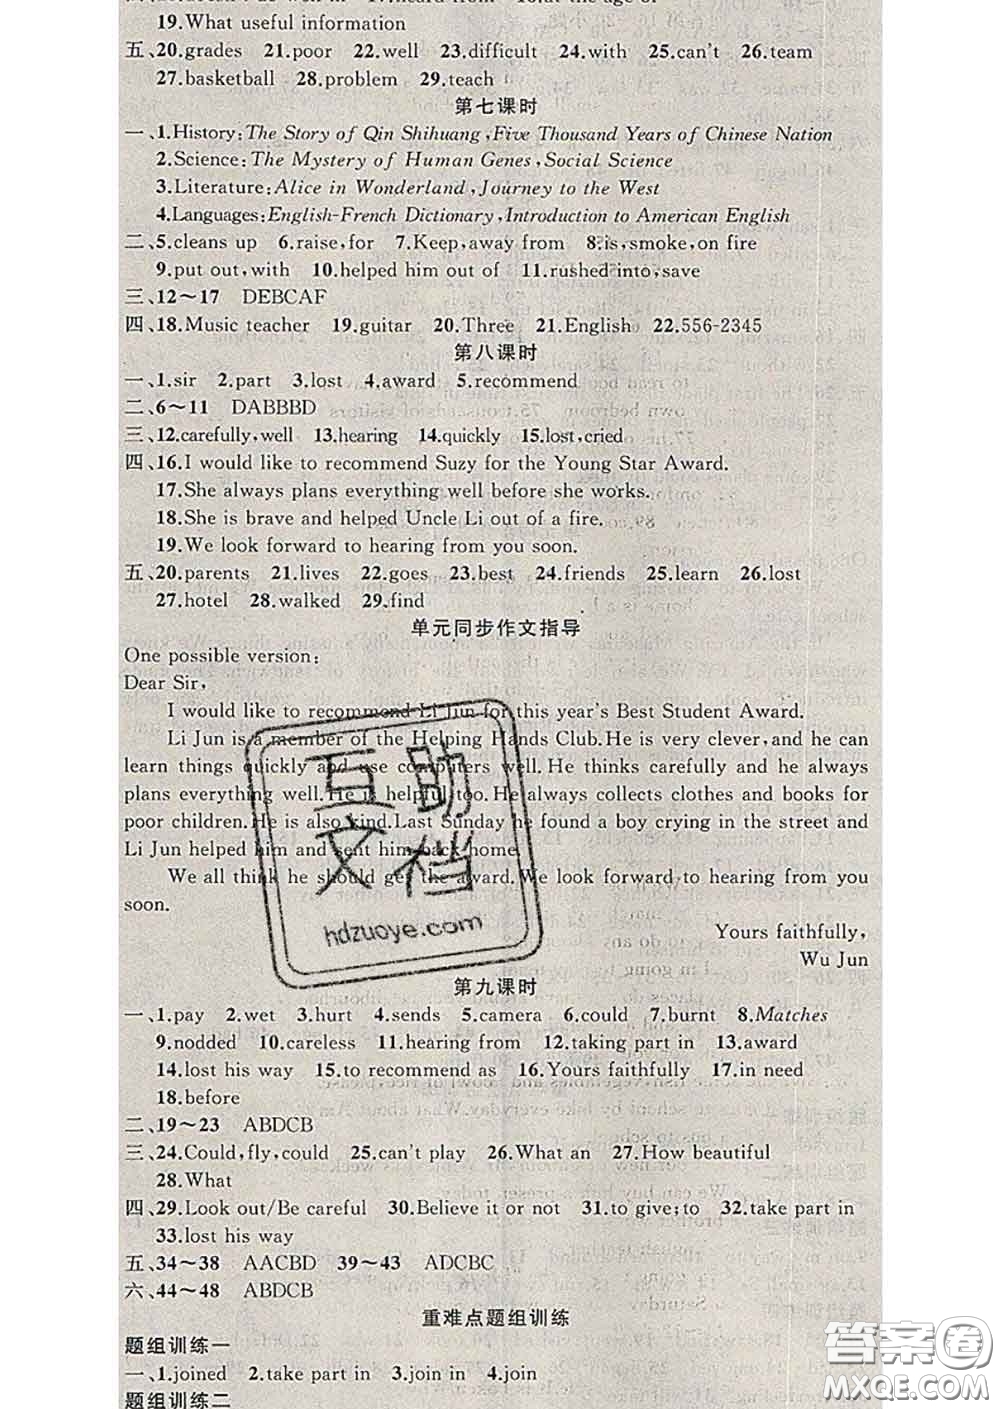 19.What useful information
五、20.grades 21.poor 22.well 23.difficult 24.with 25.can't 26.team
27.basketball 28.problem 29.teach
第七课时
一、1.History:The Story of Qin Shihuang,Five Thousand Years of Chinese Nation
2.Science:The Mystery of Human Genes,Social Science
3.Literature:Alice in Wonderland,Journey to the West
4.Languages:English-French Dictionary,Introduction to American English
二、5.cleans up 6.raise,for 7.Keep,away from 8.is,smoke,on fire
9.put out,with 10.helped him out of 11.rushed into,save
三、12～17 DEBCAF
四、18.Music teacher 19.guitar 20.Three 21.English 22.556-2345
第八课时
一、1.sir 2.part 3.lost 4.award 5.recommend
二、6～11 DABBBD
三、12.carefully,well 13.hearing 14.quickly 15.lost,cried
四、16.I would like to recommend Suzy for the Young Star Award.
17.She always plans everything well before she works.
18.She is brave and helped Uncle Li out of a fire.
19.We look forward to hearing from you soon.
五、20.parents 21.lives 22.goes 23.best 24.friends 25.learn 26.lost
27.hotel 28.walked 29.find
单元同步作文指导
One possible version:
Dear Sir,
I would like to recommend Li Jun for this year's Best Student Award.
Li Jun is a member of the Helping Hands Club.He is very clever,and he can
learn things quickly and use computers well.He thinks carefully and he always
plans everything well.He is helpful,too.He always collects clothes and books for
poor children.He is also kind.Last Sunday he found a boy crying in the street and
Li Jun helped him and sent him back home.
We all think he should get the award.We look forward to hearing from you
soon.
Yours faithfully,
Wu Jun
互助
文档
hdzuoye.com
第九课时
一、1.pay 2.wet 3.hurt 4.sends 5.camera 6.could 7.burnt 8.Matches
9.nodded 10.careless 11.hearing from 12.taking part in 13.award
14.lost his way 15.to recommend as 16.Yours faithfully 17.in need
18.before
二、19～23 ABDCB
三、24.Could,fly,could 25.can't play 26.What an 27.How beautiful
28.What
四、29.Look out/Be careful 30.Believe it or not 31.to give;to 32.take part in
33.lost his way
五、34～38 AACBD 39～43 ADCBC
六、44～48 ABDCB
重难点题组训练
题组训练一
一、1.joined 2.take part in 3.join in 4.join
题组训练二
答案圈
MXQE.COM